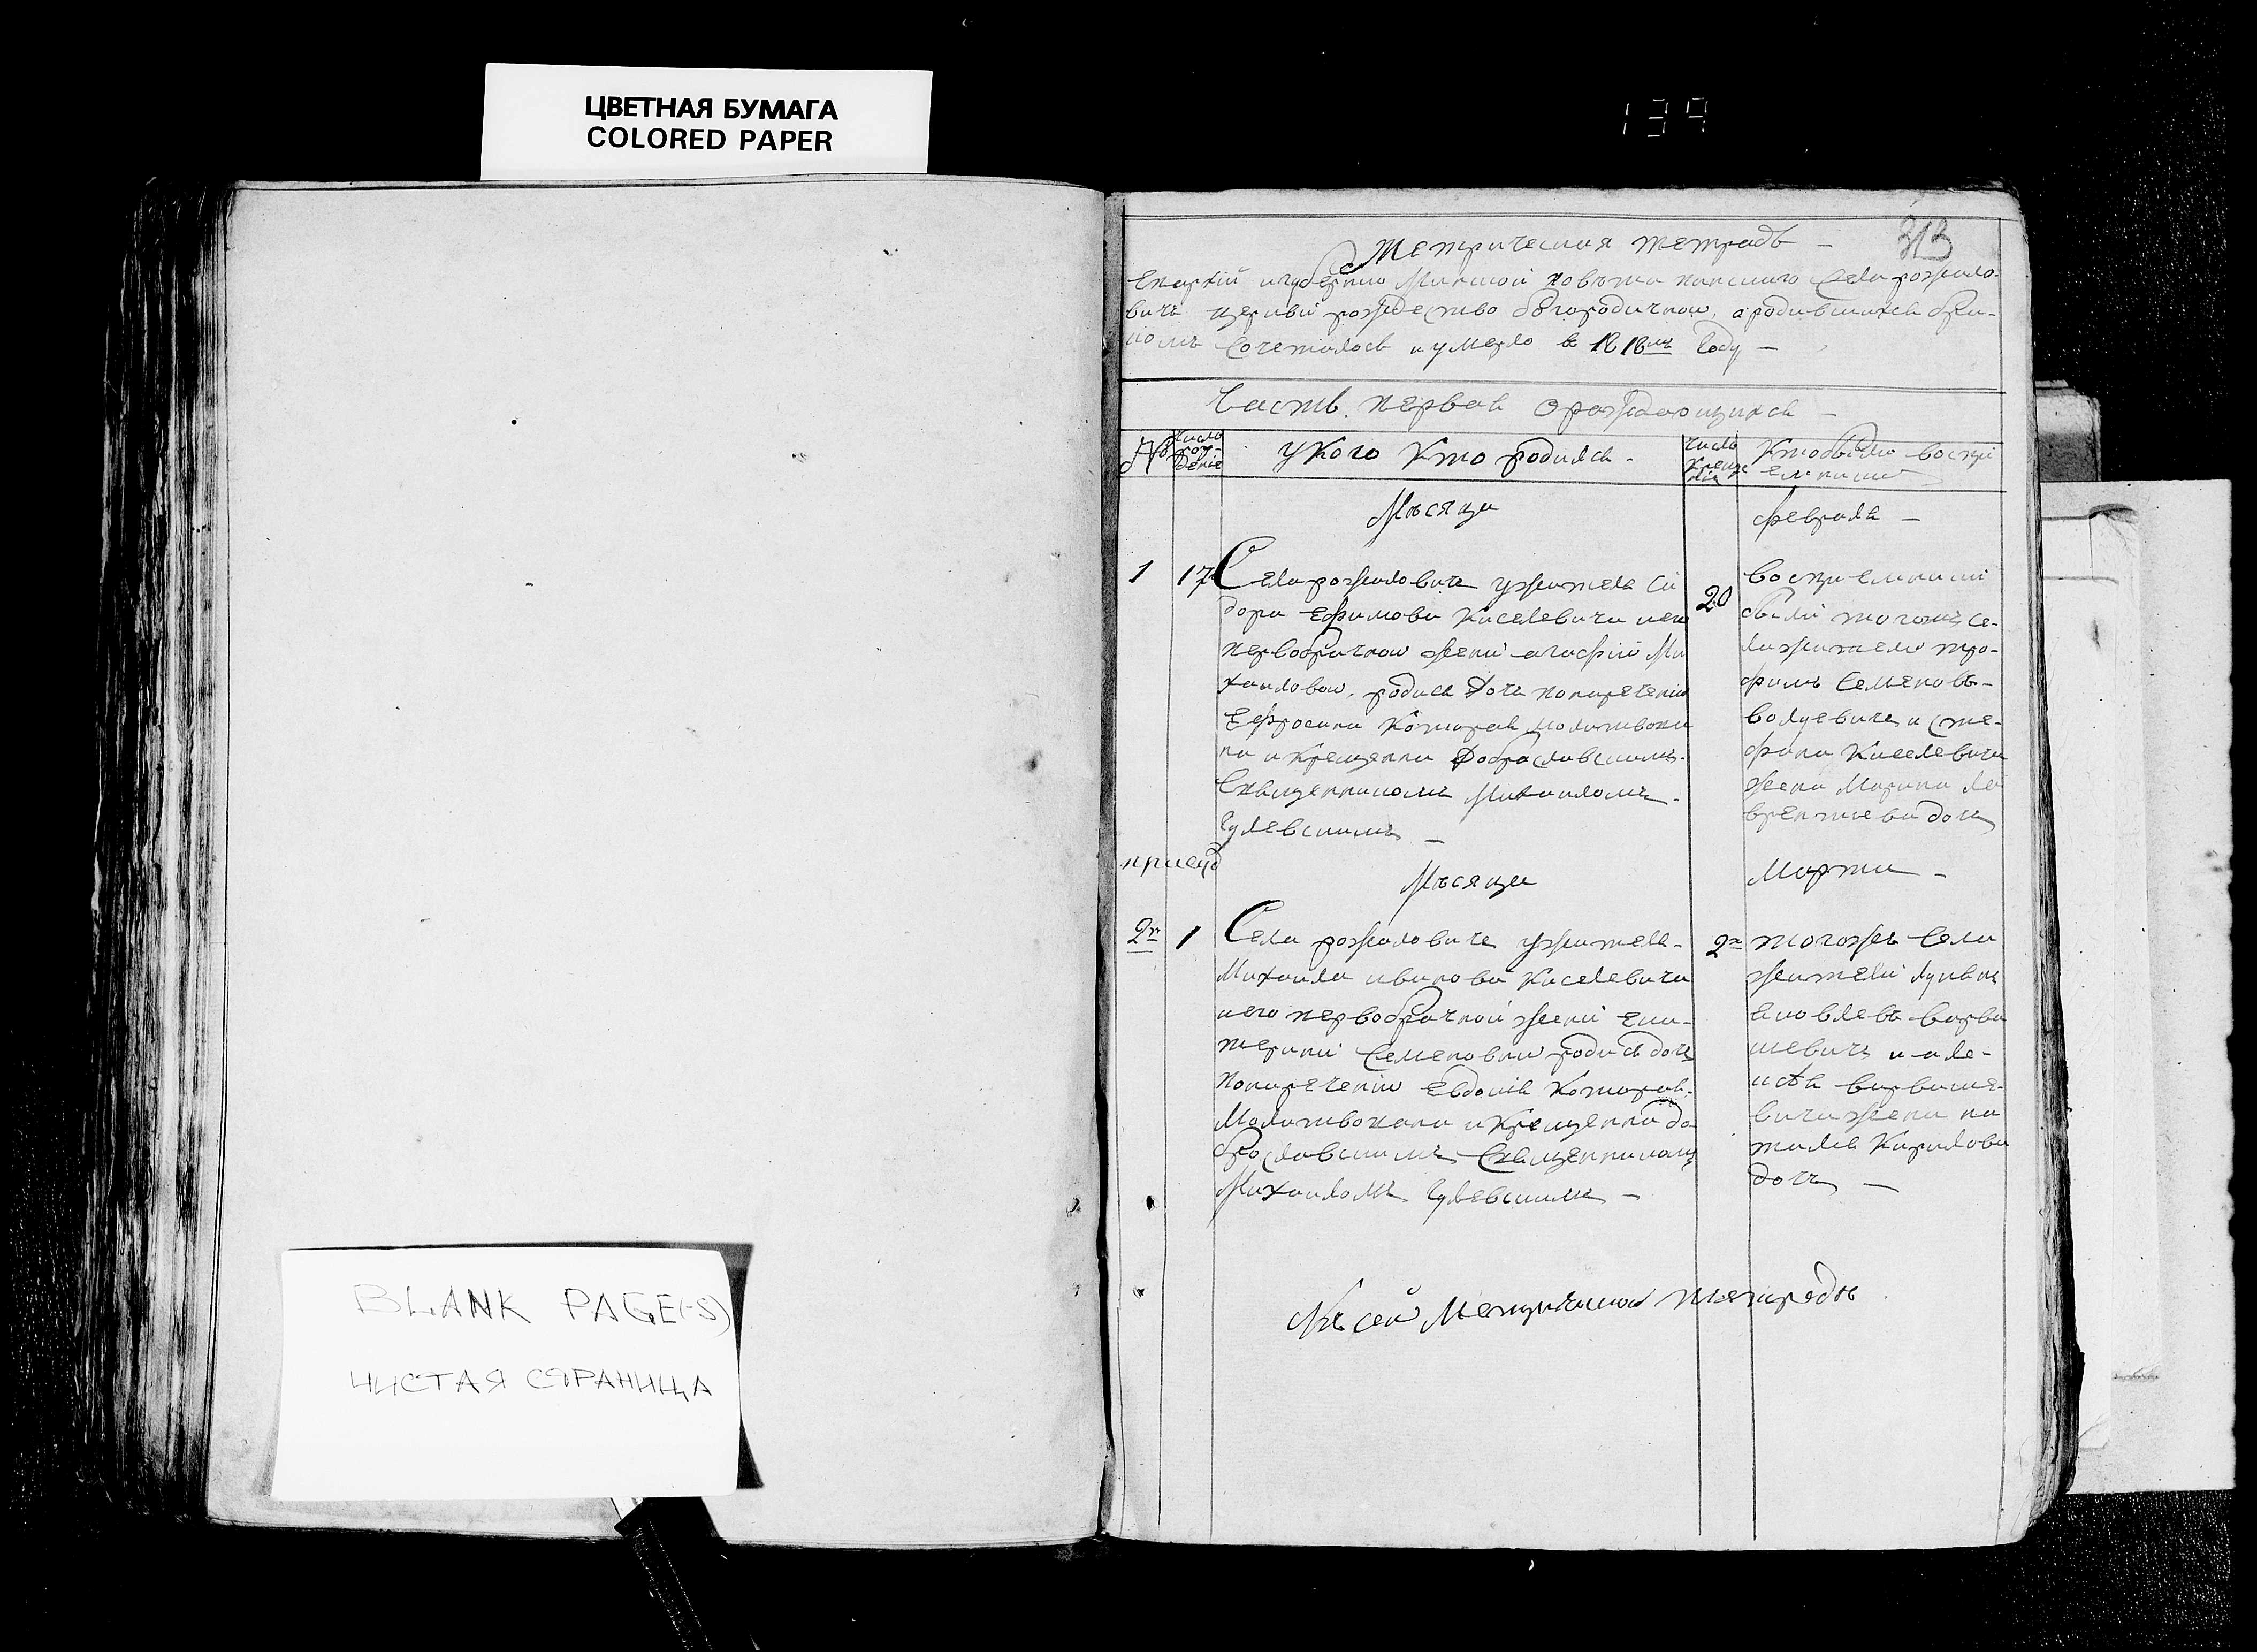 ЦВЕТНАЯ БУМАГА
COLORED PAPER
139
313
Метрическая тетрадь —
Епархіи и губерніи Минской повѣта пинского Села рожало-
вичъ церкви рождество Богородичной, о родившихся бра-
комъ Сочеталось и умерло в 1818мъ Году —
Часть первая о раждающихся —
№
Число рож-
деніе
У кого Кто родился —
Число
Креще
нія
Кто были воспри
емники
Мѣсяца
февраля —
1
17
Села рожаловичъ у жителя Си
дора Ефимова Киселевича и его
первобрачной жены агафіи Ми
хаиловой, родися дочь по наречению
Ефросина Которая молитвована
на и Крещенна Доброславскимъ
Священникомъ Михаиломъ
—
20
Восприемники
были того же се-
ла жители тро-
фимъ Семеновъ
и сте-
фана Киселевича
жена Марина ла
врентиева дочь
Мѣсяца
Марта —
2я
1
Села рожаловичъ у жителя
Михаила иванова Киселевича
и его первобрачной жены ека-
терины Семеновны родися дочь
по наречению Евдокія Которая
Молитвована и Крещенна до
брославскимъ Священникомъ
Михаиломъ —
2я
того же Села
жители лукьянъ
яковлевъ варва
шевичъ и але-
варваше-
вича жена на
талія Кирилова
дочь —
Къ сей Метрической тетради
BLANK PAGE(-S)
ЧИСТАЯ СТРАНИЦА